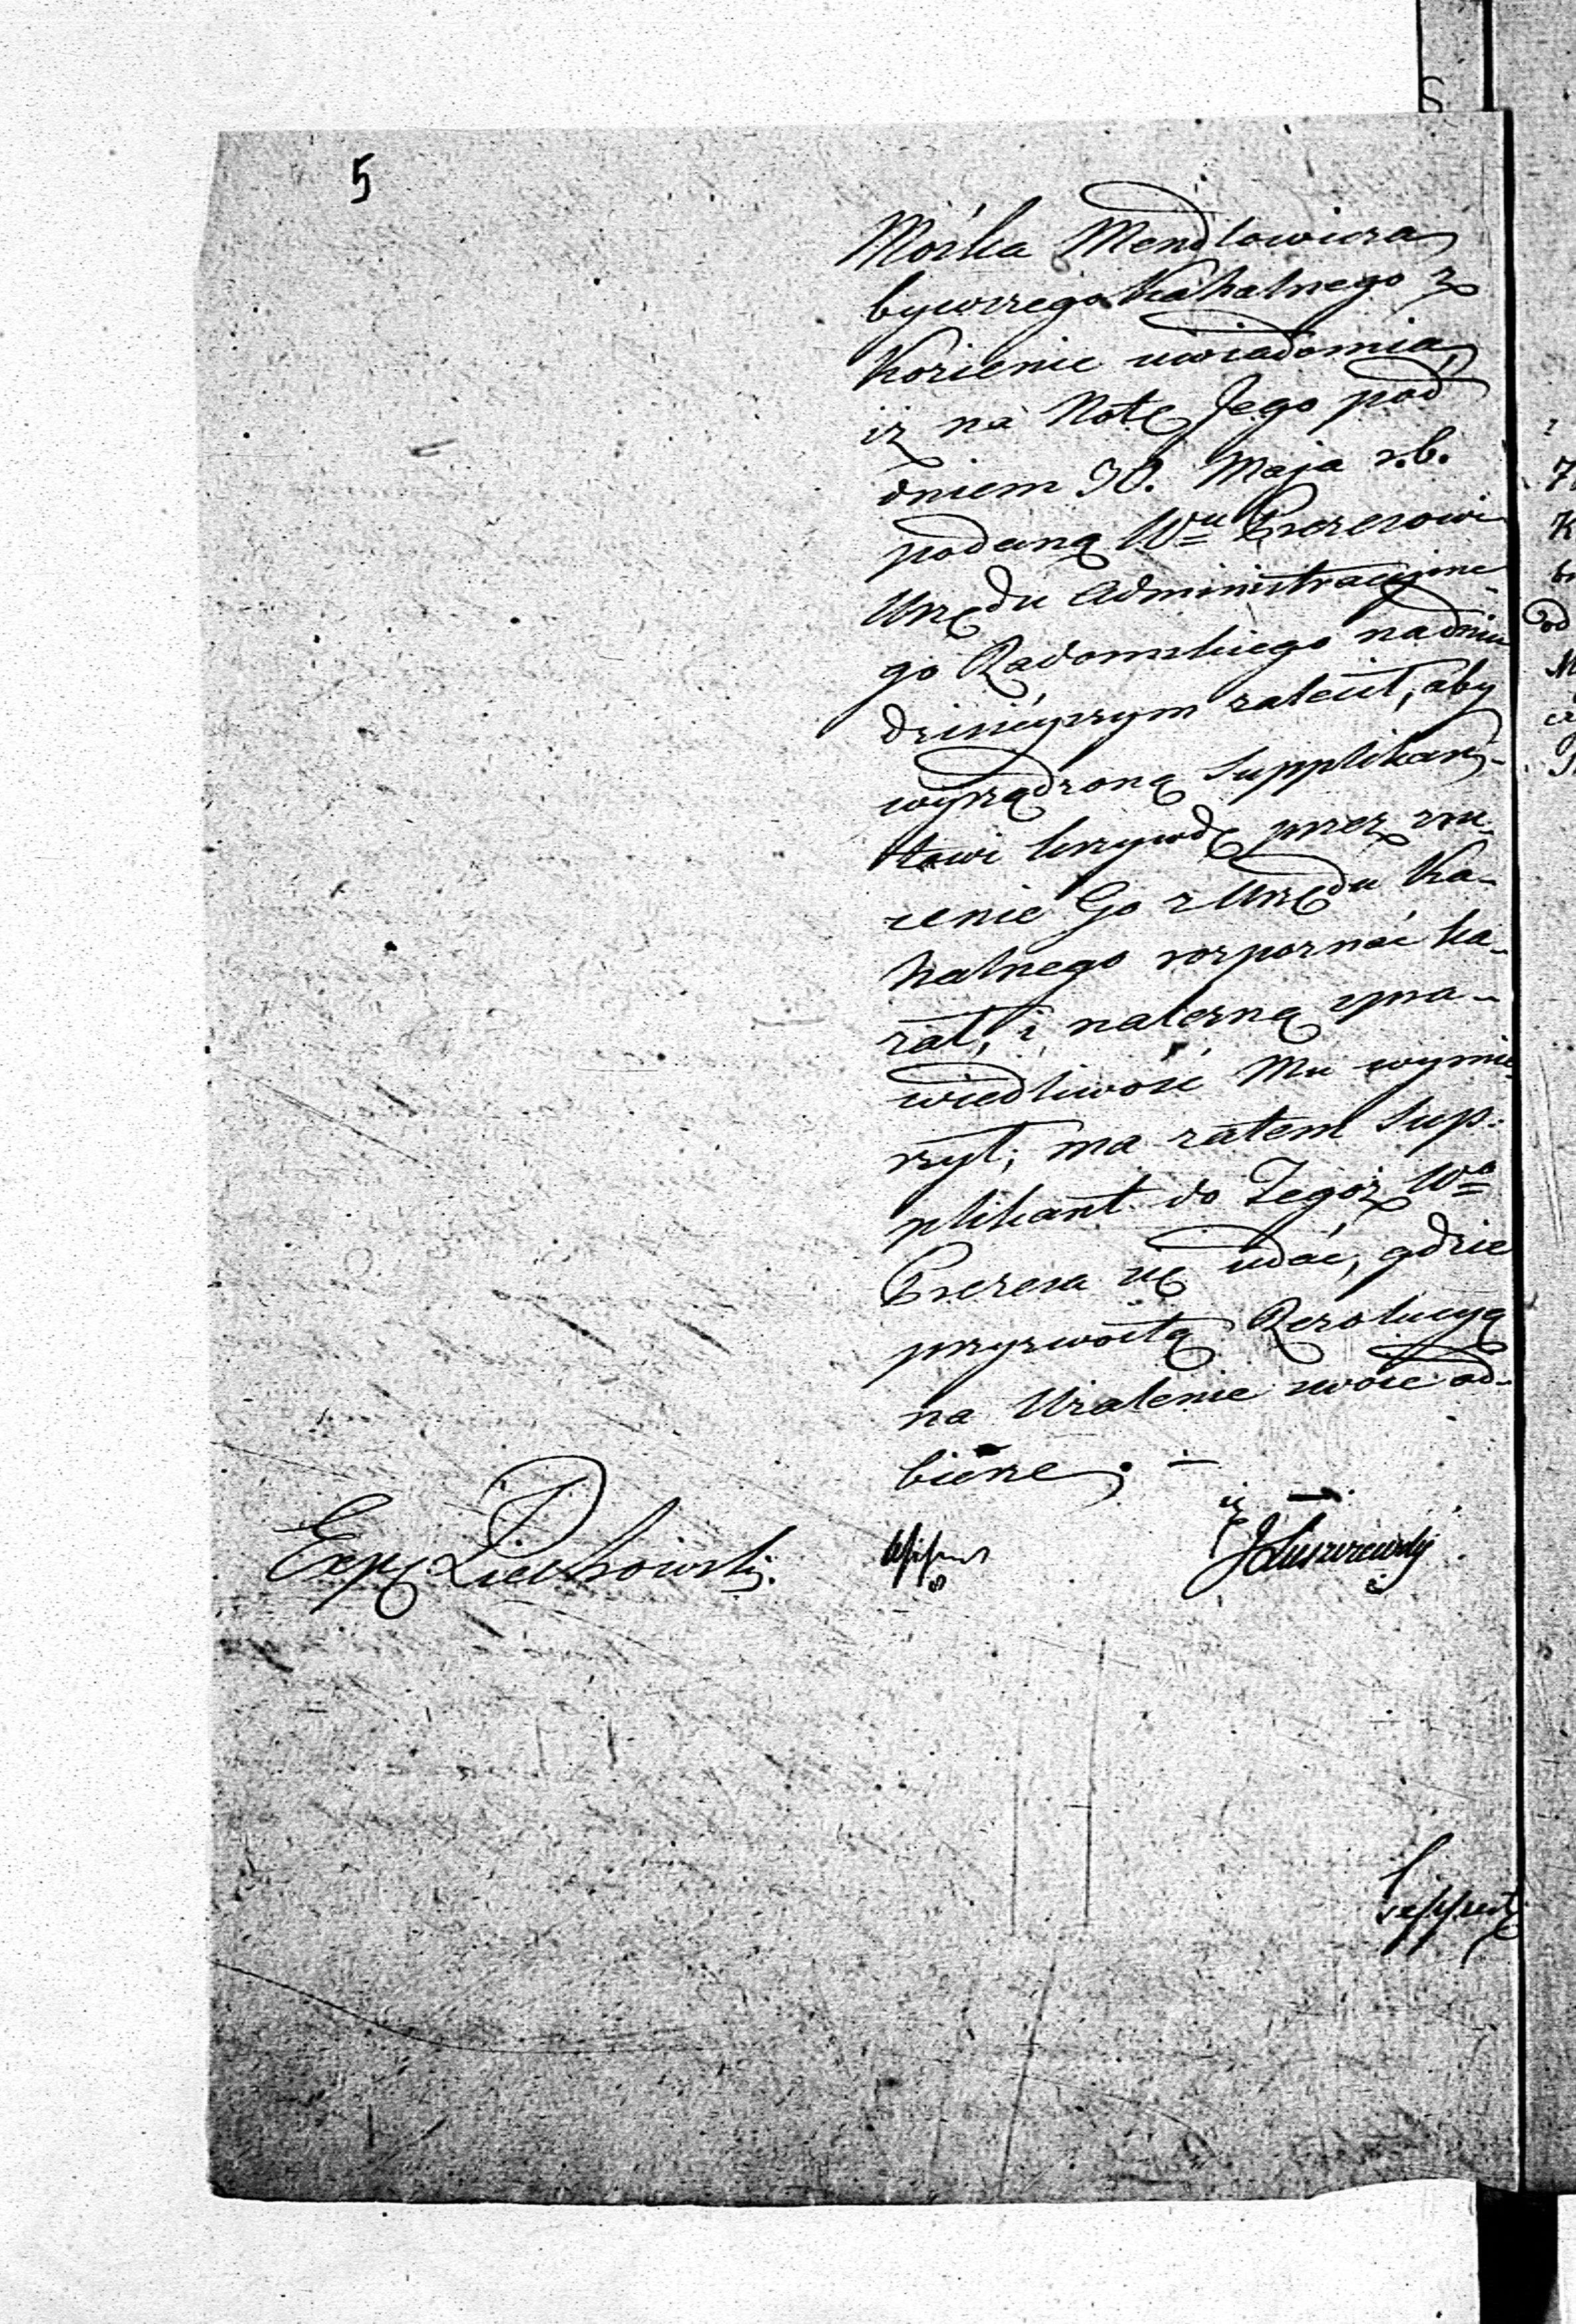 5
Mośka Mendlowicza
bywszego Kahalnego z
Kozienic uwiadomia,
iż na Notę Jego pod
dniem 30. Maja r.b.
podaną Wu Prezesowi
Urzędu Administracyjne-
go Radomskiego na dniu
dzisieyszym zalecił, aby
wyrządzoną Supplikan-
towi krzywdę przez zrzu-
cenie Go z Urzędu Ka-
halnego rozpoznać ka-
zał, i należną spra-
wiedliwość Mu wymie-
rzył; ma zatem Sup-
plikant do Tegoż Wo
Prezesa się udać, gdzie
przyzwoitą Rezolucyą
na Użalenie swoie od-
bierze. –
Exp Piechowski.